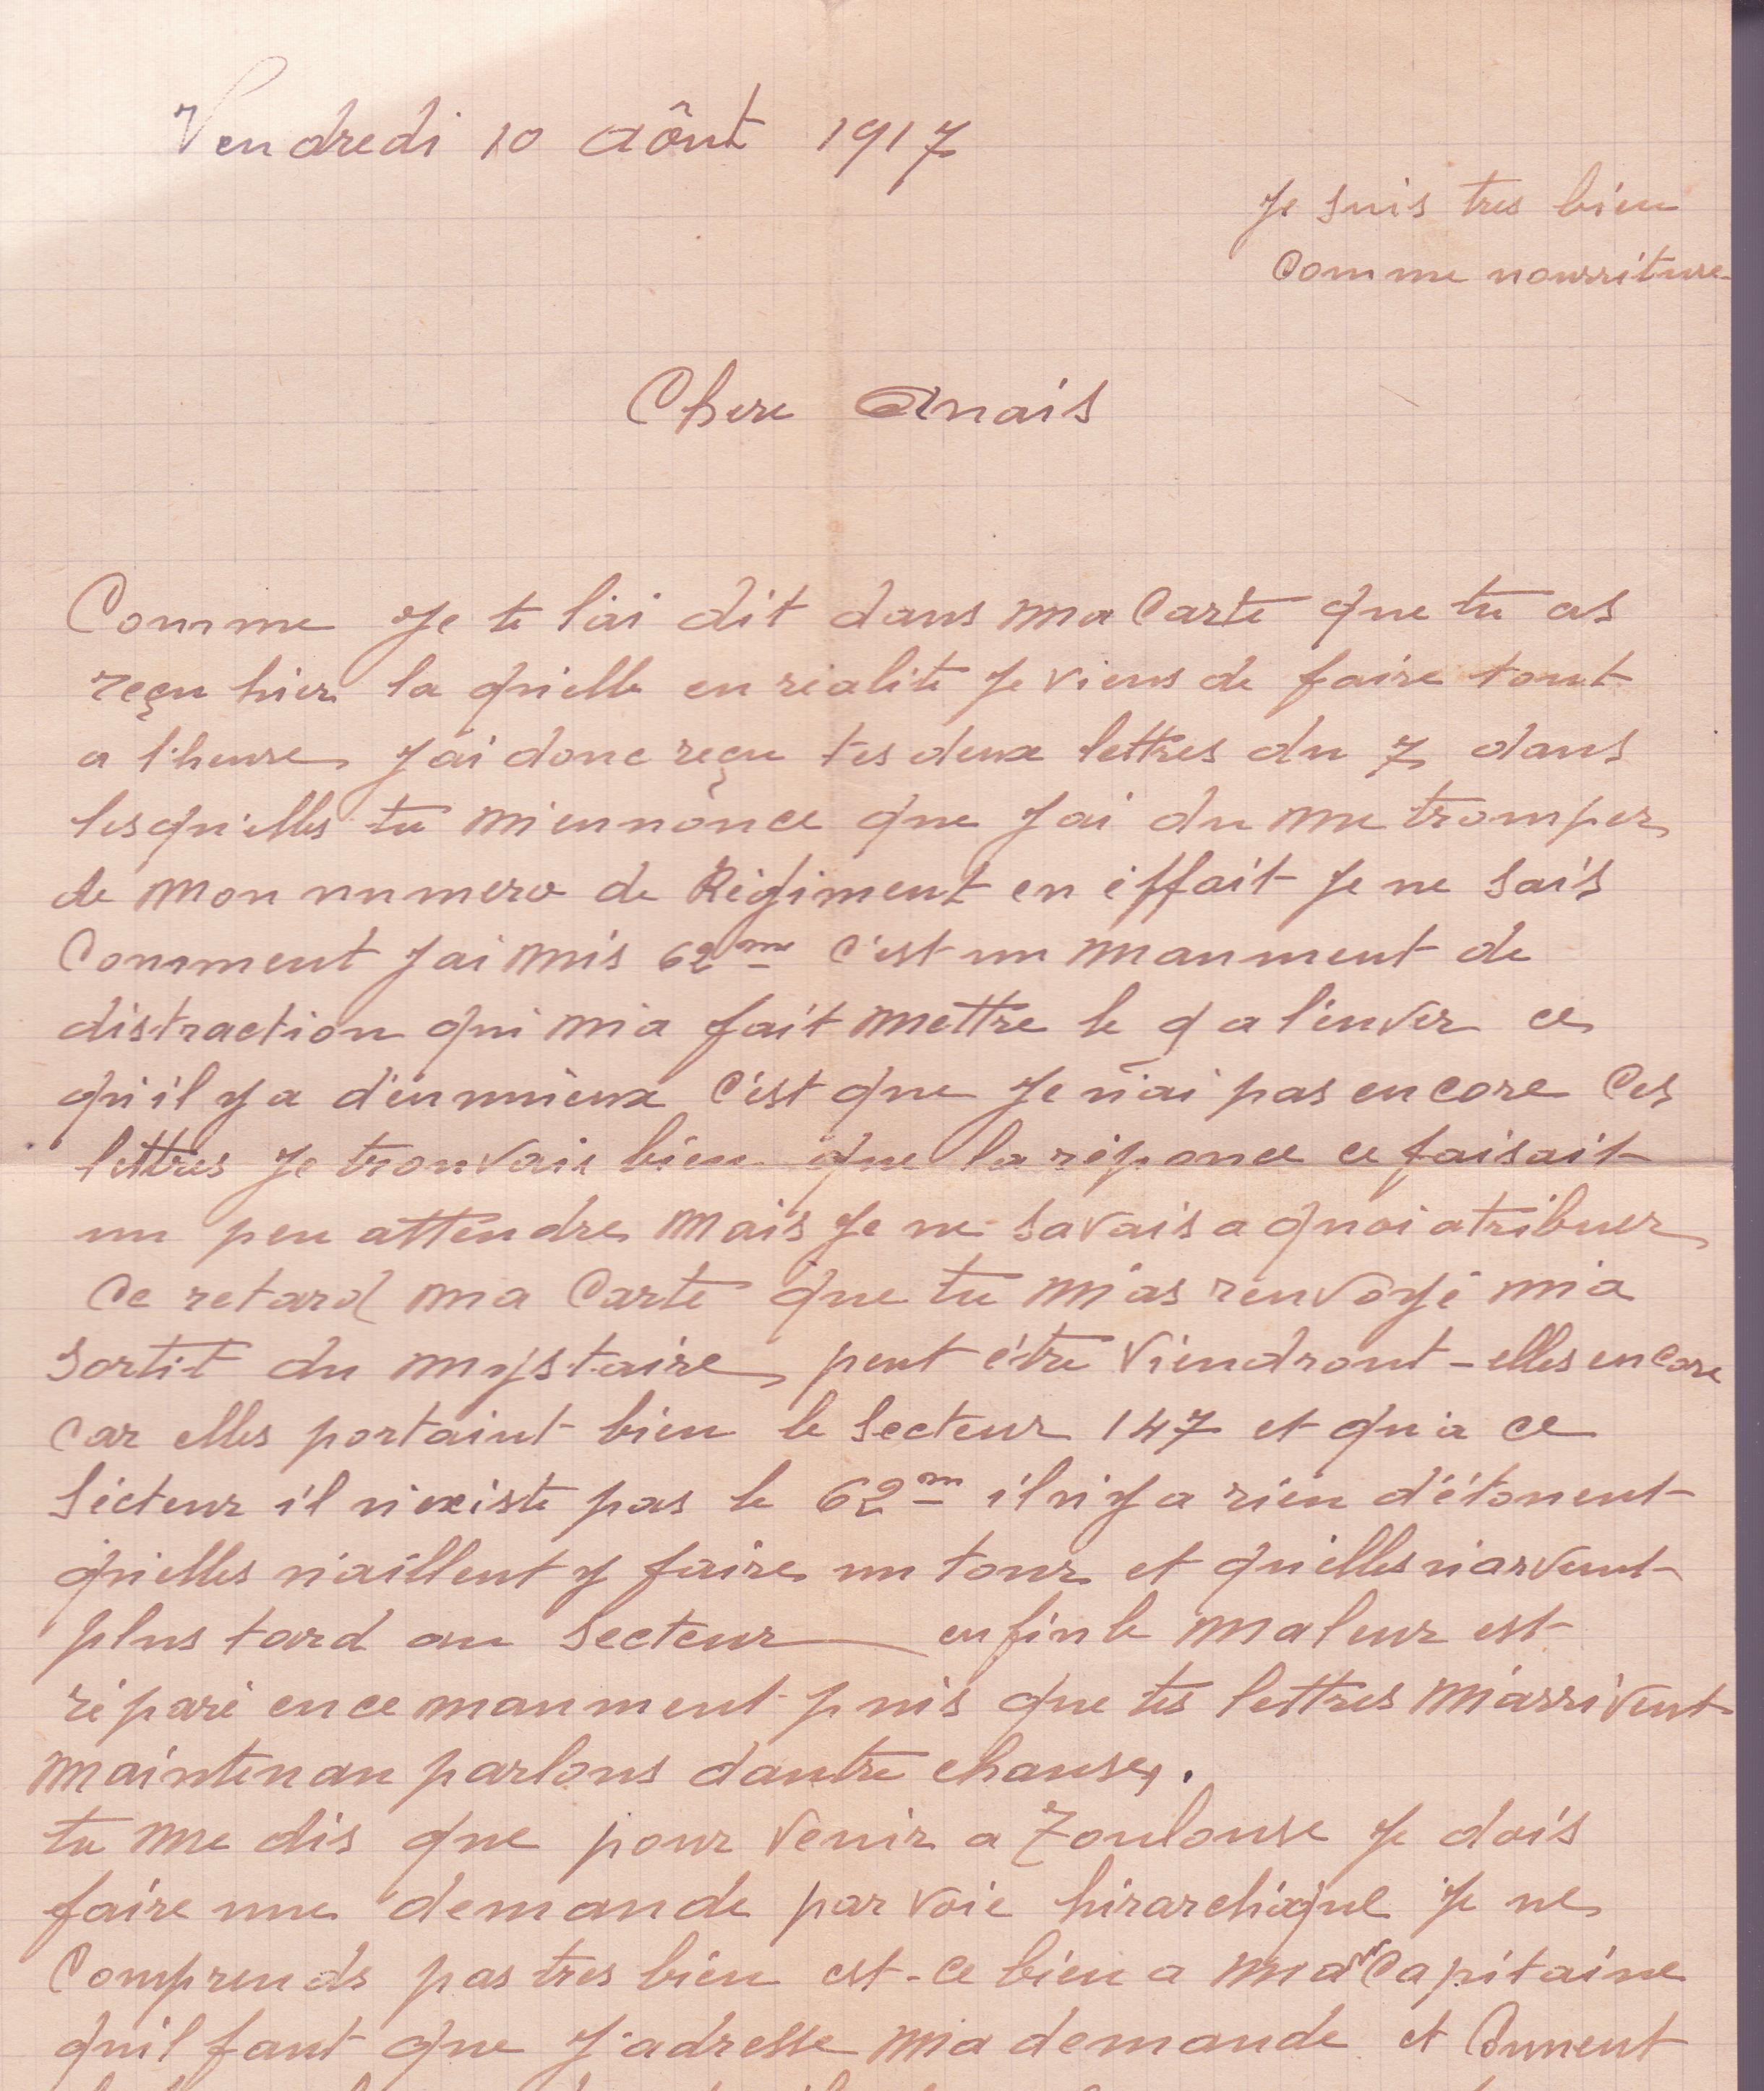 Vendredi 10 aôut 1917
Je suis tres bien
Comme nourriture
Chere Anais
Comme Je te l'ai dit dans ma Carte que tu as
reçu hier la qu'elle en réalité Je viens de faire tout
a l'heure J'ai donc reçu tes deux lettres du 7 dans
lesqu'elles tu m'ennonce que J'ai du me tromper
de mon numero de Régiment en éffait Je ne sais
Comment J'ai mis 62me C'est un maument de
distraction qui m'a fait mettre le 9 a l'enver ce
qu'il y a d'ennuieux C'est que Je n'ai pas encore Ces
lettres Je trouvais bien que la réponce ce faisait
un peu attendre mais Je ne savais a quoi atribuer
Ce retard ma Carte que tu m'as renvoyé m'a
sortit du mystaire, peut être Viendront-elles encore
Car elles portaint bien le Secteur 147 et qu'a ce
Sécteur il n'existe pas le 62m il n'y a rien d'étonent
qu'elles n'aillent y faire un tour et qu'elles n'arvent
plus tard au Secteur enfin le maleur est
réparé en ce maument puis que tes lettres m'arrivent
maintenan parlons d'autre chause,.
tu me dis que pour Venir a Toulouse Je dois
faire une demande par Voie hirarchique Je ne
Comprends pas tres bien est-ce bien a mon Capitaine
qu'il faut que J'adresse ma demande et Comment